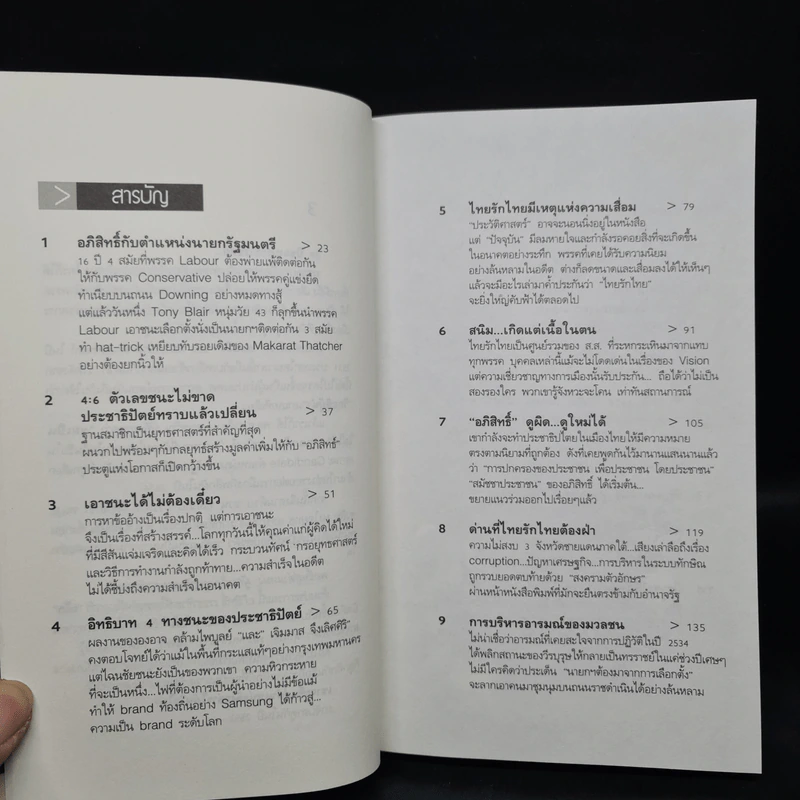 > สารบัญ
1 อภิสิทธิ์กับตำแหน่งนายกรัฐมนตรี > 23
16 ปี 4 สมัยที่พรรค Labour ต้องพ่ายแพ้ติดต่อกัน
ให้กับพรรค Conservative ปล่อยให้พรรคคู่แข่งยึด
ทำเนียบบนถนน Downing อย่างหมดทางสู้
แต่แล้ววันหนึ่ง Tony Blair หนุ่มวัย 43 ก็ลุกขึ้นนำพรรค
Labour เอาชนะเลือกตั้งนั่งเป็นนายกฯติดต่อกัน 3 สมัย
ทำ hat-trick เหยียบทับรอยเดิมของ Makarat Thatcher
อย่างต้องยกนิ้วให้
2 4:6 ตัวเลขชนะไม่ขาด
ประชาธิปัตย์ทราบแล้วเปลี่ยน > 37
ฐานสมาชิกเป็นยุทธศาสตร์ที่สำคัญที่สุด
ผนวกไปพร้อมๆกับกลยุทธ์สร้างมูลค่าเพิ่มให้กับ "อภิสิทธิ์"
ประตูแห่งโอกาสก็เปิดกว้างขึ้น
3 เอาชนะได้ไม่ต้องเดี๋ยว > 51
การหาข้ออ้างเป็นเรื่องปกติ แต่การเอาชนะ
จึงเป็นเรื่องที่สร้างสรรค์...โลกทุกวันนี้ให้คุณค่าแก่ผู้คิดได้ใหม่
ที่มีสีสันแจ่มเจริดและคิดได้เร็ว กระบวนทัศน์ กรอยุทธศาสตร์
และวิธีการทำงานกำลังถูกท้าทาย...ความสำเร็จในอดีต
ไม่ได้ชี้บ่งถึงความสำเร็จในอนาคต
4 อิทธิบาท 4 ทางชนะของประชาธิปัตย์ > 65
ผลงานขององอาจ คล้ามไพบูลย์ "และ" เจิมมาส จึงเลิศศิริ
คงตอบโจทย์ได้ว่าแม้ในพื้นที่กระแสแท้ๆอย่างกรุงเทพมหานคร
แต่ไฉนชัยชนะยังเป็นของพวกเขา ความหิวกระหาย
ที่จะเป็นหนึ่ง...ไฟที่ต้องการเป็นผู้นำอย่างไม่มีข้อแม้
ทำให้ brand ท้องถิ่นอย่าง Samsung ได้ก้าวสู่...
ความเป็น brand ระดับโลก
5 ไทยรักไทยมีเหตุแห่งความเสื่อม > 79
"ประวัติศาสตร์" อาจจะนอนนิ่งอยู่ในหนังสือ
แต่ "ปัจจุบัน" มีลมหายใจและกำลังรอคอยสิ่งที่จะเกิดขึ้น
ในอนาคตอย่างระทึก พรรคที่เคยได้รับความนิยม
อย่างล้นหลามในอดีต ต่างก็ลดขนาดและเสื่อมลงได้ให้เห็นๆ
แล้วจะมีอะไรเล่ามาค้ำประกันว่า "ไทยรักไทย"
จะยิ่งใหญ่คับฟ้าได้ตลอดไป
6 สนิม...เกิดแต่เนื้อในตน > 91
ไทยรักไทยเป็นศูนย์รวมของ ส.ส. ที่ระหกระเหินมาจากแทบ
ทุกพรรค บุคคลเหล่านี้แม้จะไม่โดดเด่นในเรื่องของ Vision
แต่ความเชี่ยวชาญทางการเมืองนั้นรับประกัน... ถือได้ว่าไม่เป็น
สองรองใคร พวกเขารู้จังหวะจะโคน เท่าทันสถานการณ์
7 "อภิสิทธิ์" ดูผิด...ดูใหม่ได้ > 105
เขากำลังจะทำประชาธิปไตยในเมืองไทยให้มีความหมาย
ตรงตามนิยามที่ถูกต้อง ดังที่เคยพูดกันไว้มานานแสนนานแล้ว
ว่า "การปกครองของประชาชน เพื่อประชาชน โดยประชาชน"
"สมัชชาประชาชน" ของอภิสิทธิ์ ได้เริ่มต้น...
ขยายแนวร่วมออกไปเรื่อยๆแล้ว
8 ด่านที่ไทยรักไทยต้องฝ่า > 119
ความไม่สงบ 3 จังหวัดชายแดนภาคใต้...เสียงเล่าลือถึงเรื่อง
corruption...ปัญหาเศรษฐกิจ...การบริหารในระบบทักษิณ
ถูกรวบยอดตบท้ายด้วย "สงครามตัวอักษร"
ผ่านหน้าหนังสือพิมพ์ที่มักจะยืนตรงข้ามกับอำนาจรัฐ
9 การบริหารอารมณ์ของมวลชน > 135
ไม่น่าเชื่อว่าอารมณ์ที่เคยสะใจจากการปฏิวัติในปี 2534
ได้พลิกสถานะของวีรบุรุษให้กลายเป็นทรราชย์ในแค่ช่วงปีเศษๆ
ไม่มีใครคิดว่าประเด็น "นายกฯต้องมาจากการเลือกตั้ง"
จะลากเอาคนมาชุมนุมบนถนนราชดำเนินได้อย่างล้นหลาม